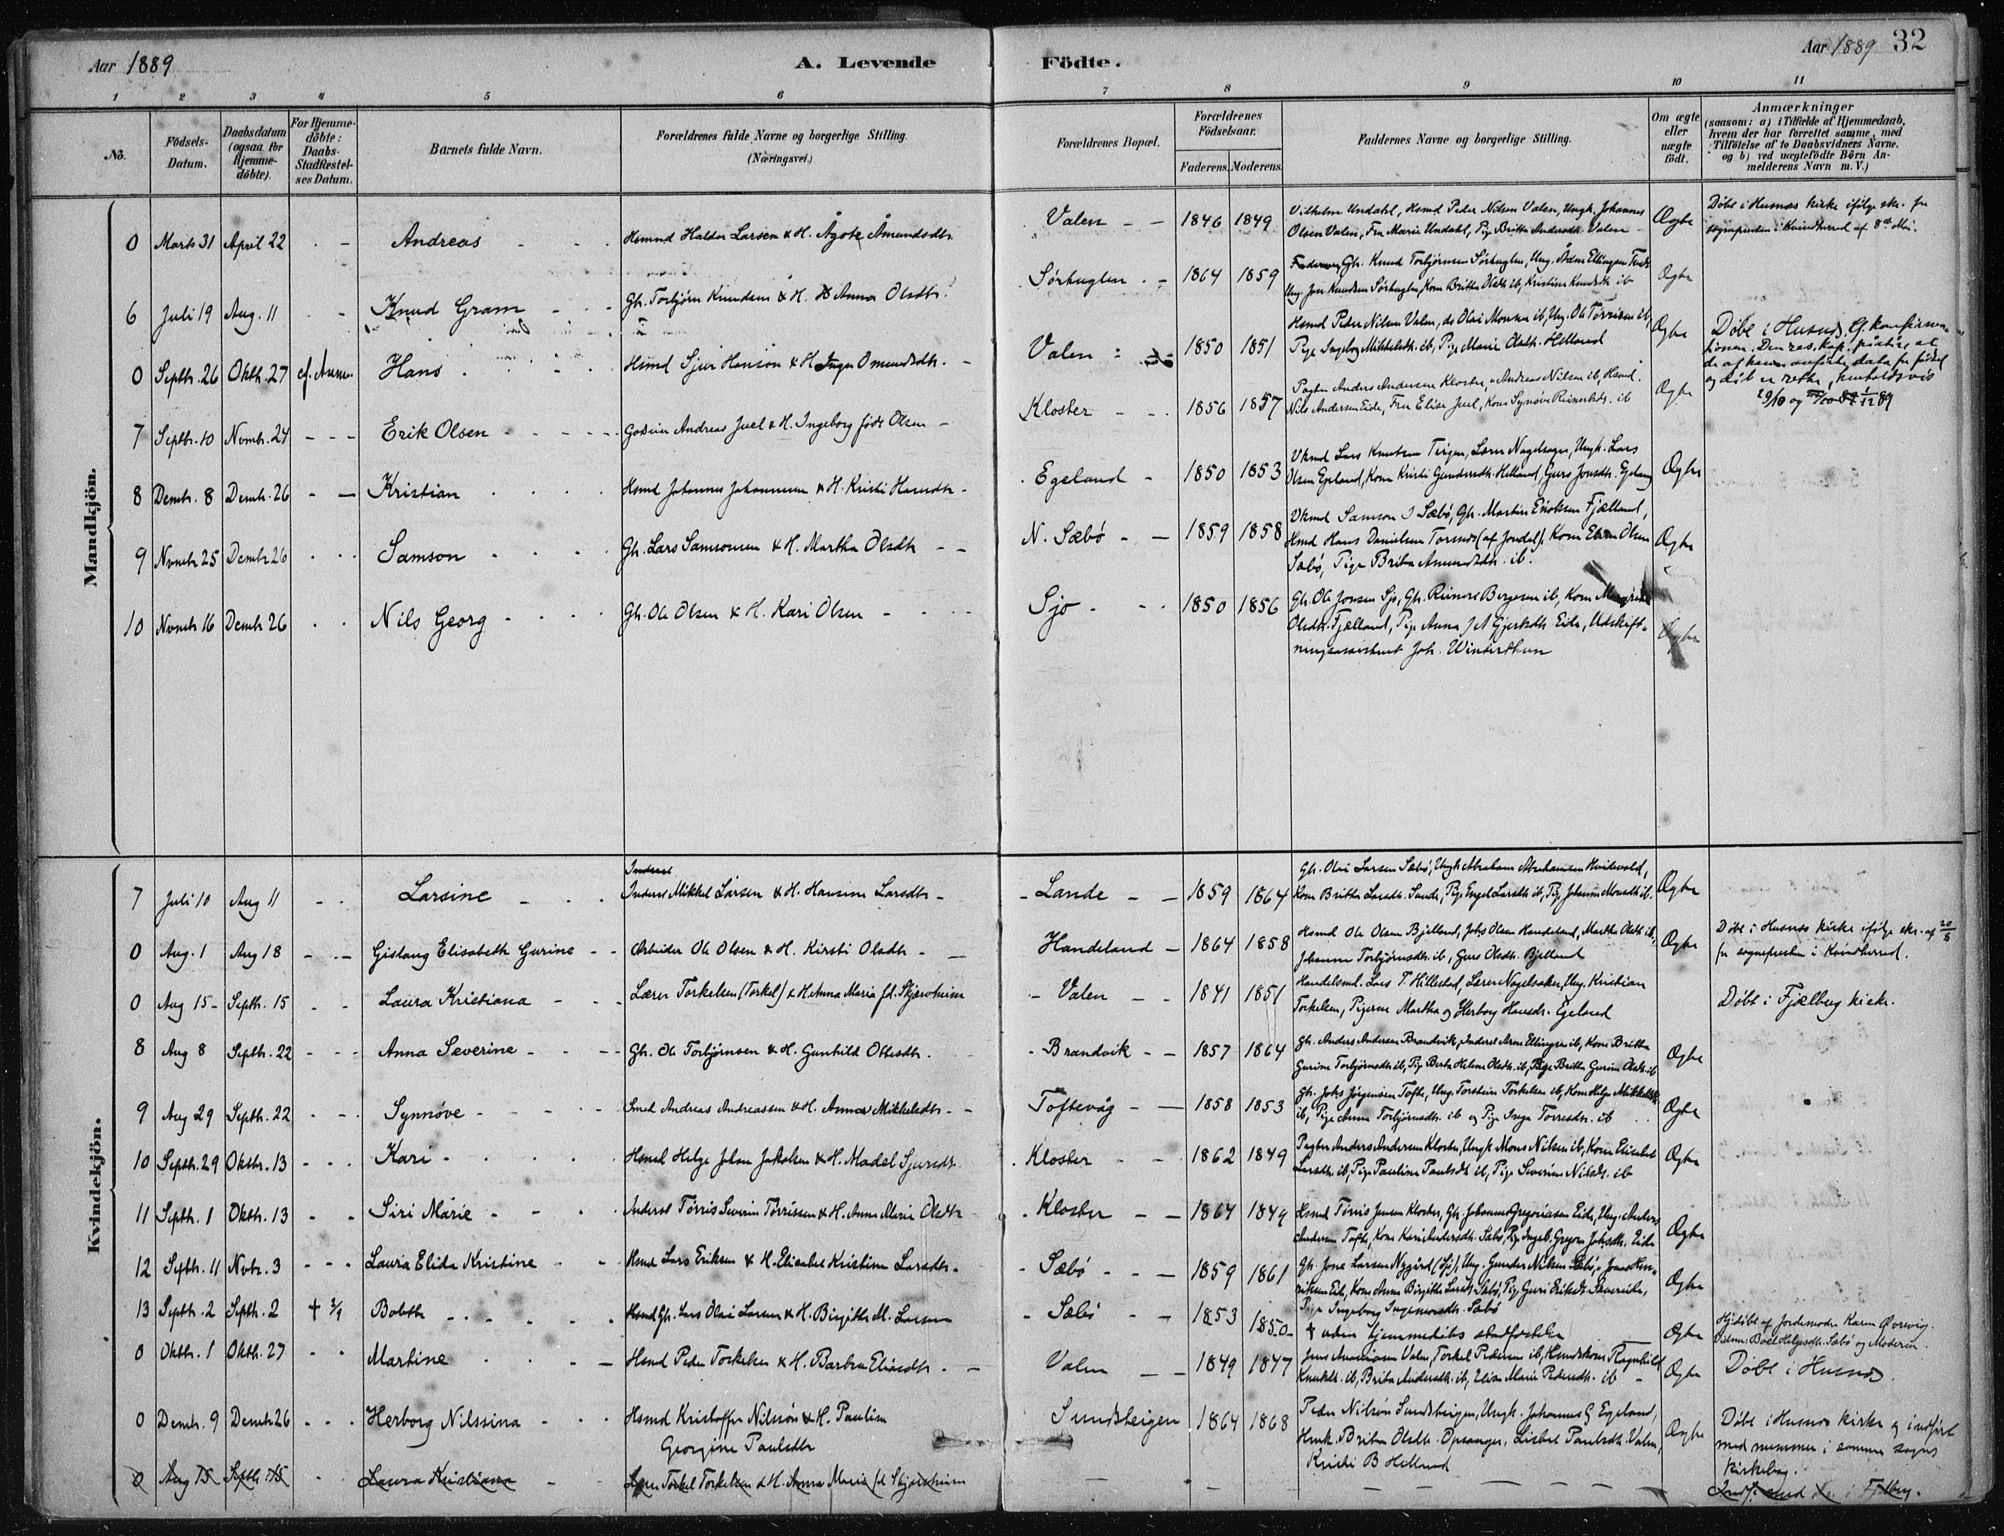 Aar 1889
A. Levende Födte.
Aar 1889 32
1 2 3 4 5 6 7 8 9 10 11
No.
Födsels-Datum.
Daabsdatum (ogsaa for Hjemme-döbte).
For Hjemme-döbte: Daabs-Stadfæstelses Datum.
Barnets fulde Navn.
Forældrenes fulde Navne og borgerlige Stilling. (Næringsvei.)
Forældrenes Bopæl.
Forældrenes Födselsaar.
Faderens. Moderens.
Faddernes Navne og borgerlige Stilling.
Om ægte eller uægte födt.
Anmærkninger (saasom: a) i Tilfælde af Hjemmedaab, hvem der har forrettet samme, med Tilföielse af to Daabsvidners Navne, og b) ved uægtefödte Börn Anmelderens Navn m. V.)
Mandkjön.
0 Marts 31 April 22 Andreas Hsmnd Haldor Larsen & H. Ågote Åmundsdtr Valen 1846 1849 Vilhelm Undahl, Hsmd Peder Nilsen Valen, Ungk. Johannes
Olsen Valen, Fru Marie Undahl, Pige Britta Andersdtr. Valen Ægte Döbt i Husnes kirke ifölge skr. fra
sognepresten i Kvindherred af 8de Mai.
6 Juli 19 Aug. 11 Knud Gram Gbr. Torbjörn Knudsen & H. Anna Olsdtr. Sörhuglen 1864 1859 Gbr. Knud Torbjörnsen Sörhuglen,
Ung. Jon Knudsen Sörhuglen, Kone Britta Olsdtr ib, Kristine Knudsdtr ib Ægte
0 Septbr. 26 Oktbr. 27 cf. Anm. Hans Hsmd Sjur Hansen & H. Inger Omundsdtr. Valen 1850 1851 Hsmd Peder Nilsen Valen, do Olai Monsen ib, Ung. Ole Törrisen ib,
Pige Ingeborg Mikkelsdtr. ib, Pige Marie Olsdtr. Helland Ægte Döbt i Husnes.
7 Septbr. 10 Novmbr. 24 Erik Olsen Andreas Juel & H. Ingeborg född Olsen Kloster 1856 1857 Pagter Anders Andersen Kloster, Andreas Nilsen ib, Hsmd.
Nils Andersen Eide, Fru Elise Juel, Kone Synöve Reinertsdtr. ib Ægte
8 Decmbr. 8 Decmbr. 26 Kristian Hsmd Johannes Johannesen & H. Kristi Hansdtr Egeland 1850 1853 Lars Knutsen Teigen, Lærer Nagelsager, Ungk. Lars
Olsen Egeland, Kone Kristi Gundersdtr Helland, Guro Jonsdtr. Egeland Ægte
9 Novmbr 25 Decmbr 26 Samson Gbr. Lars Samsonsen & H. Martha Olsdtr N. Sæbö 1859 1858 Samson J Sæbö, Gbr. Martin Eriksen Fjælland,
Hsmd Hans Danielsen Torsnes (af Jondal), Kone Olsen
Sæbö, Pige Brita Amundsdtr. ib. Ægte
10 Novmbr 16 Decmbr 26 Nils Georg Gbr. Ole Olsen & H. Kari Olsen Sjo 1850 1856 Gbr. Ole Jonsen Sjo, Gbr. Reinert Bergesen ib, Kone
Olsdtr. Fjælland, Pige Anna Gjertsdtr. Eide, Udskift-
ningsassistent Joh. Winterthun Ægte
Kvindekjön.
7 Juli 10 Aug 11 Larsine Inderst
Inderst Mikkel Larsen & H. Hansine Larsdtr Lande 1859 1864 Gbr. Olai Larsen Sæbö, Ungk Abraham Abrahamsen
Kone Britha Larsdtr. Sunde, Pige Engel Larsdtr ib, Pige Johanne Monsdtr ib. Ægte
0 Aug. 1 Aug 18 Gislaug Elisabeth Gurine Arbeider Ole Olsen & H. Kirsti Olsdtr Handeland 1864 1858 Hsmd Ole Olsen Bjelland, Johs Olsen Handeland, Martha Olsdtr ib,
Johanne Torbjörnsdtr. ib, Guro Olsdtr. Bjelland Ægte Döbt i Husnes kirke ifölge skr. af 20/8
fra sognepresten i Kvindherred.
0 Aug 15 Septbr. 15 Laura Kristiana Lærer Torkelsen (Torkel) & H. Anna Maria fd. Skjærsheim Valen 1841 1851 Handelsmd. Lars T. Hillestad, Lærer Nagelsaker, Ung. Kristian
Torkelsen, Pigerne Martha og Herborg Hansdtr. Egeland Döbt i Fjælberg kirke.
8 Aug 8 Septbr. 22 Anna Severine Gbr. Ole Torbjörnsen & H. Gunhild Ottesdtr. Brandvik 1857 1864 Gbr. Anders Andersen Brandvik, Inderst Arne Ellingsen ib, Kone Britha
Gurine Torbjörnsdtr ib, Pige Berta Helene Olsdtr. ib, Pige Britha Gurine Olsdtr. ib Ægte
9 Aug 29 Septbr. 22 Synnöve Smed Andreas Andreassen & H. Anna Mikkelsdtr Toftevåg 1858 1853 Gbr. Johs Jörgensen Tofte, Ung. Torstein Torkelsen ib, Kone Helga Mikkelsdtr
ib, Pige Anna Torbjörnsdtr. ib og Pige Inga Torresdtr. ib Ægte
10 Septbr. 29 Oktbr. 13 Kari Hsmd Helge Johan Jakobsen & H. Madel Sjursdtr Kloster 1862 1849 Pagter Anders Andersen Kloster, Ungk Mons Nilsen ib, Kone Elisabet
Larsdtr. ib, Pige Pauline Paulsdtr ib, Pige Severine Nilsdtr. ib Ægte
11 Septbr. 1 Oktbr. 13 Siri Marie Inderst Törris Severin Törrissen & H. Anna Marie Olsdtr Kloster 1864 1849 Hsmd Törris Jensen Kloster, Gbr. Johannes Gregoriussen Eide, Ung. Anders
Andersen Tofte, Kone Kari Andersdtr. Sæbö, Pige Ingeb. Gregora Johsdtr. Eide Ægte
12 Septbr. 11 Novbr. 3 Laura Elida Kristine Hsmd Lars Eriksen & H. Elisabet Kristine Larsdtr Sæbö 1859 1861 Gbr. Jone Larsen Nygård (Sjo), Ung. Gunder Nilsen Sæbö, Jonas Hen-
riksen Eide, Kone Anna Birgitha Larsdtr. Sæbö, Pige Guri Eriksdtr.
Pige Ingeborg Ingemarsdtr. Sæbö Ægte
13 Septbr. 2 Septbr. 2 † 2/9 Bolette Hsmd Gbr. Lars Olai Larsen & H. Birgithe M. Larsen Sæbö 1853 1850 † uden hjemmedåbs stadfæstelse Ægte Hjdöbt af Jordemoder Karen Övrevig.
Vidner: Boel Helgesdtr. Sæbö og Moderen.
0 Oktbr. 1 Oktbr. 27 Martine Hsmd Peder Torkelsen & H. Barbra Eliasdtr Valen 1849 1847 Jens Valen, Torkel Pedersen ib, Hsmdskone Ragnhild
Knutsdtr. ib, Brita Andersdtr. ib, Elisa Marie Pedersdtr. ib Ægte Döbt i Husnes.
0 Decmbr. 9 Decmbr 26 Herborg Nilssina Hsmd Kristoffer Nilsson & H. Pauline
Georgine Paulsdtr Sundsteigen 1864 1868 Peder Nilsön Sundsteigen, Ungk. Johannes G Egeland,
Hsmk. Britha Olsdtr. Opsanger, Lisbet Paulsdtr Valen,
Kristi B Helland Ægte Döbt i Husnes kirke og indfört
med nummer i samme sogns
kirkebog.
0 Aug 15 Septbr. 15 Laura Kristiana Lærer Torkel Torkelsen & H. Anna Maria fd Skjærsheim